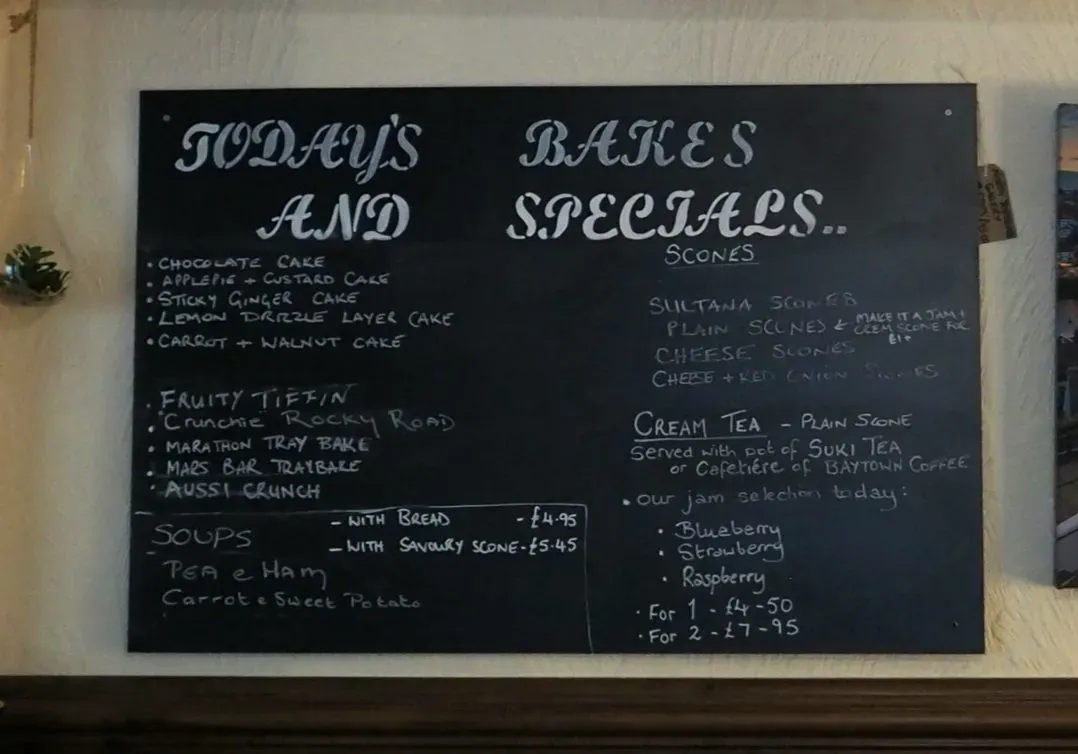 TODAY'S BAKES
AND SPECIALS..
• CHOCOLATE CAKE
• APPLEPIE + CUSTARD CAKE
• STICKY GINGER CAKE
• LEMON DRIZZLE LAYER CAKE
• CARROT + WALNUT CAKE
• FRUITY TIFFIN
• "Crunchie" ROCKY ROAD
• MARATHON TRAY BAKE
• MARS BAR TRAYBAKE
• AUSSI CRUNCH
SOUPS
– WITH BREAD - £4.95
– WITH SAVOURY SCONE - £5.45
PEA & HAM
Carrot & Sweet Potato
SCONES
SULTANA SCONES
PLAIN SCONES
MAKE IT A JAM +
CREM SCONE FOR
£1+
CHEESE SCONES
CHEESE + RED ONION SCONES
CREAM TEA – PLAIN SCONE
Served with pot of SUKI TEA
or Cafetiére of BAYTOWN COFFEE
• our jam selection today:
• Blueberry
• Strawberry
• Raspberry
• For 1 - £4-50
• For 2 - £7-95